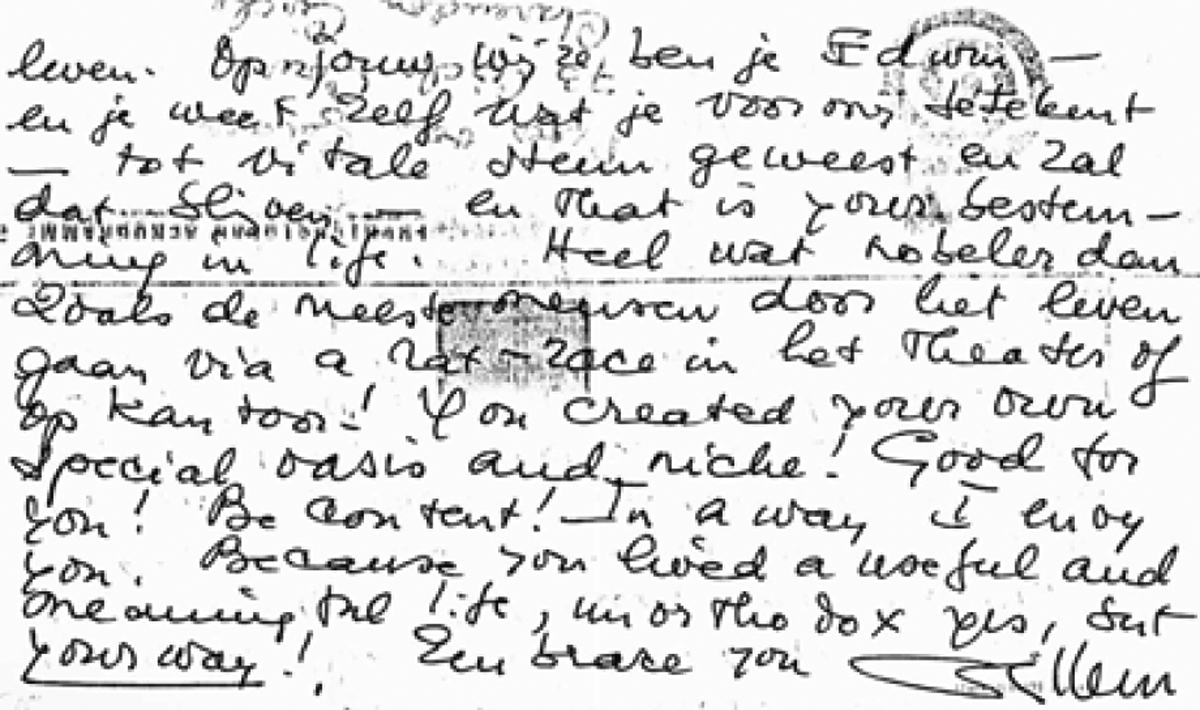 leven. Op jouw wijze ben je Edwin —
en je weet zelf wat je voor ons betekent
— tot vitale steun geweest en zal
dat blijven — en that is your bestem-
ming in life. Heel wat nobeler dan
zoals de meeste mensen door het leven
gaan via a rat-race in het theater of
op kantoor! You created your own
special oasis and niche! Good for
you! Be content! In a way I envy
you. Because you lived a useful and
meaningful life, unorthodox yes, but
your way!